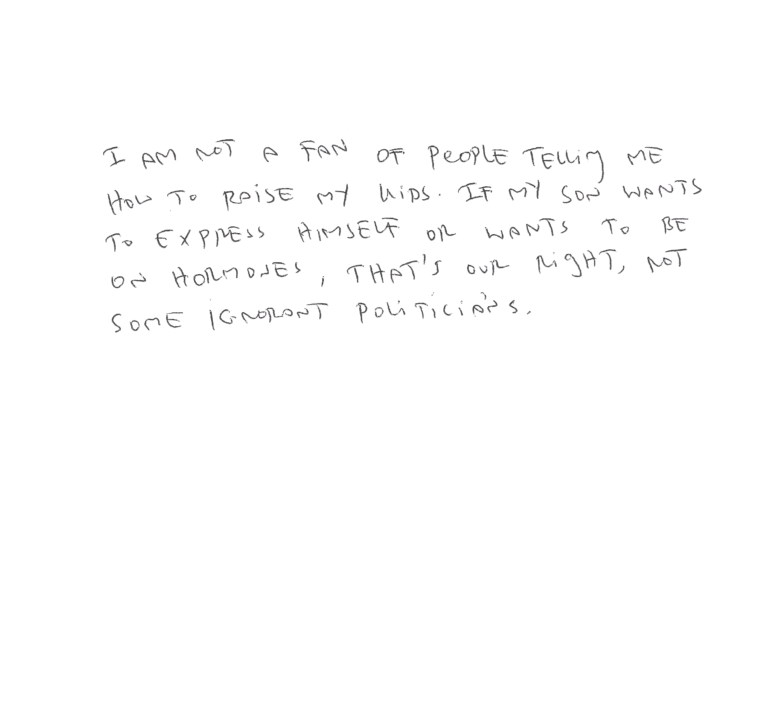 I AM NOT A FAN OF PEOPLE TELLING ME
HOW TO RAISE MY KIDS. IF MY SON WANTS
TO EXPRESS HIMSELF OR WANTS TO BE
ON HORMONES, THAT'S OUR RIGHT, NOT
SOME IGNORANT POLITICIAN'S.